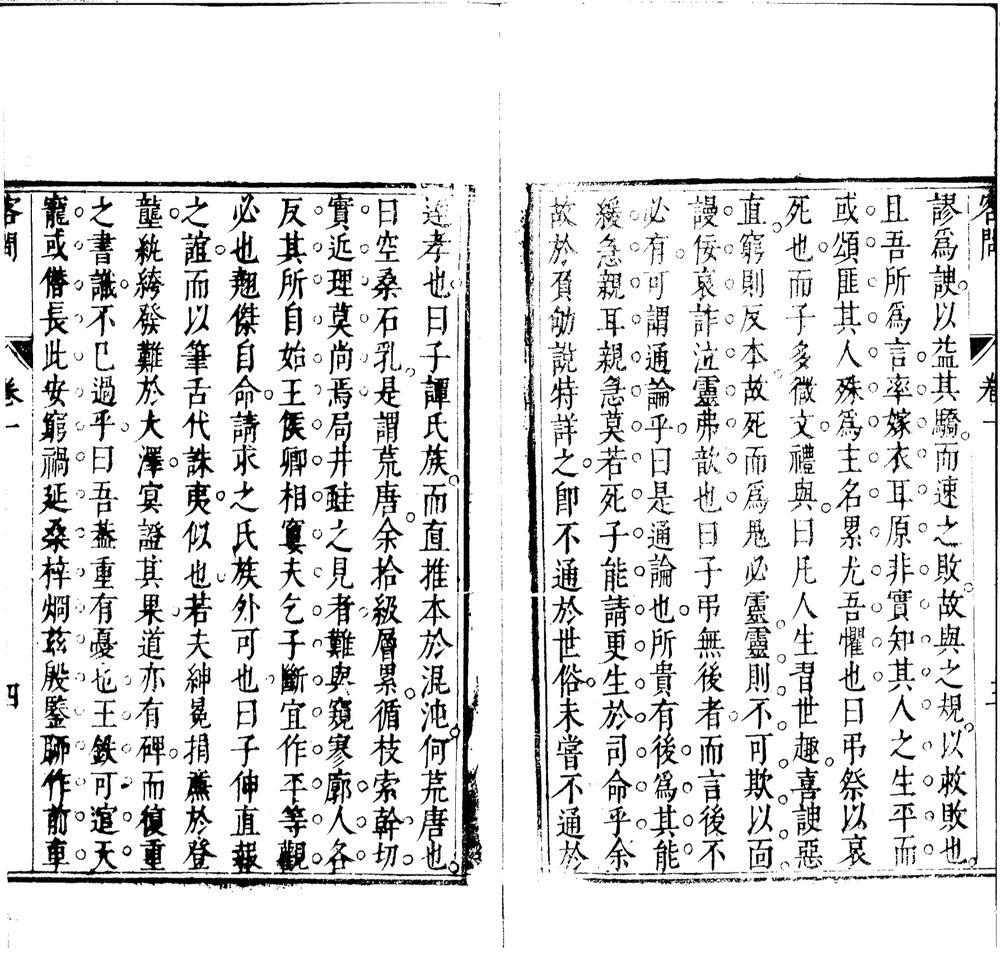 客問
卷一
謬爲諛以益其驕而速之敗故與之規以救敗也
且吾所爲言率嫁衣耳原非實知其人之生平而
或頌匪其人殊爲主名累尤吾懼也曰弔祭以哀
死也而子多微文禮與曰凡人生習世趣喜諛惡
直窮則反本故死而爲鬼必靈靈則不可欺以面
謾佞哀詐泣靈弗歆也曰子弔無後者而言後不
必有可謂通論乎曰是通論也所貴有後爲其能
緩急親耳親急莫若死子能請更生於司命乎余
故於負勉說特詳之卽不通於世俗未嘗不通於
達孝也曰子譚氏族而直推本於混沌何荒唐也
曰空桑石乳是謂荒唐余拾級層累循枝索幹切
實近理莫尚焉局井鼃之見者難與窺寥廓人各
反其所自始王侯卿相窶夫乞子斷宜作平等觀
必也翹傑自命請求之氏族外可也曰子伸直報
之誼而以筆舌代誅夷似也若夫紳冕捐薦於登
壟紈綺發難於大澤冥證其果道亦有碑而復重
之書讖不已過乎曰吾蓋重有憂也王鈇可逭天
寵或僭長此安窮禍延桑梓烱茲殷鑒聊作前車
客問
卷一
四